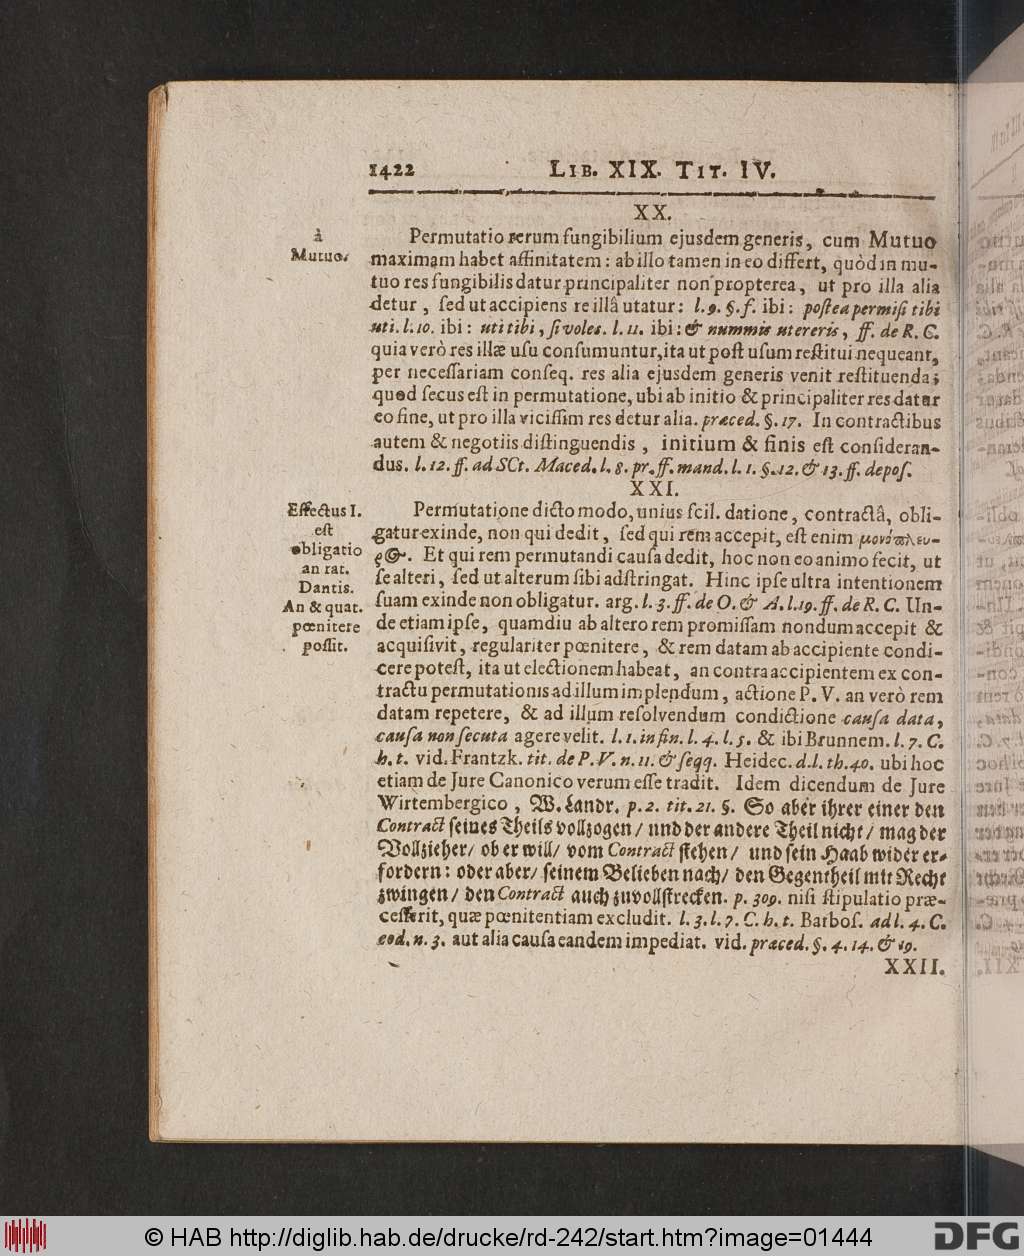 1422 LIB. XIX. TIT. IV.
XX.
à
Mutuo.
Permutatio rerum fungibilium ejusdem generis, cum Mutuo
maximam habet affinitatem: ab illo tamen in eo differt, quòd in mu-
tuo res fungibilis datur principaliter non propterea, ut pro illa alia
detur, ſed ut accipiens re illâ utatur: l. 9. §. f. ibi: poſtea permiſi tibi
uti. l. 10. ibi: uti tibi, ſi voles. l. 11. ibi: & nummis utereris, ff. de R. C.
quia verò res illæ uſu conſumuntur, ita ut poſt uſum reſtitui nequeant,
per neceſſariam conſeq. res alia ejusdem generis venit reſtituenda;
quod ſecus eſt in permutatione, ubi ab initio & principaliter res datur
eo fine, ut pro illa viciſſim res detur alia. præced. §. 17. In contractibus
autem & negotiis diſtinguendis, initium & finis eſt conſideran-
dus. l. 12. ff. ad SCt. Maced. l. 8. pr. ff. mand. l. 1. §. 12. & 13. ff. depoſ.
XXI.
Effectus I.
eſt
obligatio
an rat.
Dantis.
An & quat.
pœnitere
poſſit.
Permutatione dicto modo, unius ſcil. datione, contractâ, obli-
gatur exinde, non qui dedit, ſed qui rem accepit, eſt enim μονόπλευ-
ρος. Et qui rem permutandi cauſa dedit, hoc non eo animo fecit, ut
ſe alteri, ſed ut alterum ſibi adſtringat. Hinc ipſe ultra intentionem
ſuam exinde non obligatur. arg. l. 3. ff. de O. & A. l. 19. ff. de R. C. Un-
de etiam ipſe, quamdiu ab altero rem promiſſam nondum accepit &
acquiſivit, regulariter pœnitere, & rem datam ab accipiente condi-
cere poteſt, ita ut electionem habeat, an contra accipientem ex con-
tractu permutationis ad illum implendum, actione P. V. an verò rem
datam repetere, & ad illum reſolvendum condictione cauſa data,
cauſa non ſecuta agere velit. l. 1. in fin. l. 4. l. 5. & ibi Brunnem. l. 7. C.
h. t. vid. Frantzk. tit. de P. V. n. 11. & ſeqq. Heidec. d. l. th. 40. ubi hoc
etiam de Jure Canonico verum eſſe tradit. Idem dicendum de Jure
Wirtembergico, W. Landr. p. 2. tit. 21. §. So aber ihrer einer den
Contract ſeines Theils vollzogen/ und der andere Theil nicht/ mag der
Vollzieher/ ob er will/ vom Contract ſtehen/ und ſein Haab wider er-
fordern: oder aber/ ſeinem Belieben nach/ den Gegentheil mit Recht
zwingen/ den Contract auch zuvollſtrecken. p. 309. niſi ſtipulatio præ-
ceſſerit, quæ pœnitentiam excludit. l. 3. l. 7. C. h. t. Barboſ. ad l. 4. C.
eod. n. 3. aut alia cauſa eandem impediat. vid. præced. §. 4. 14. & 19.
XXII.
© HAB http://diglib.hab.de/drucke/rd-242/start.htm?image=01444
DFG